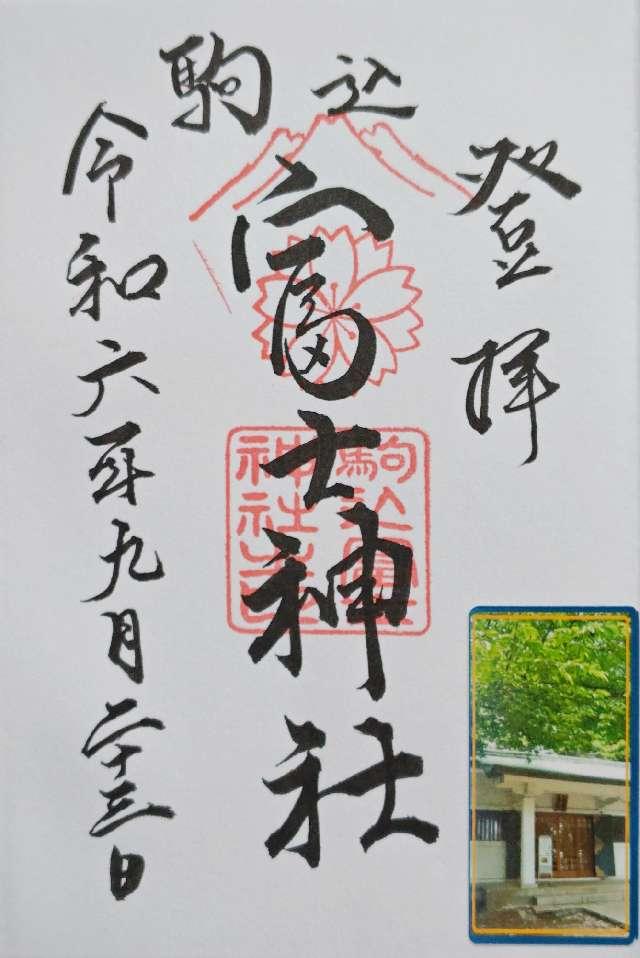 登拝
駒込
富士神社
令和六年九月二十三日
駒込富士
神社